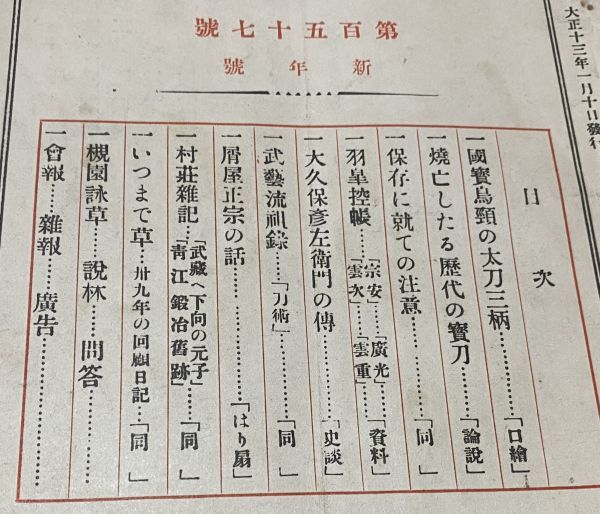 大正十三年一月十日發行
第百五十七號
新年號
目次
一國寳鳥頸の太刀三柄………「口繪」
一燒亡したる歴代の寳刀………「論說」
一保存に就ての注意………「同」
一羽皐控帳……「宗安」……「廣光」「雲次」……「雲重」「資料」
一大久保彥左衞門の傳………「史談」
一武藝流祖錄……「刀術」………「同」
一屑屋正宗の話………「はり扇」
一村莊雜記……「武藏へ下向の元子」「靑江鍛冶舊跡」「同」
一いつまで草……卅九年の回顧日記……「同」
一槻園詠草……說林……問答………
一會報……雜報……廣告………